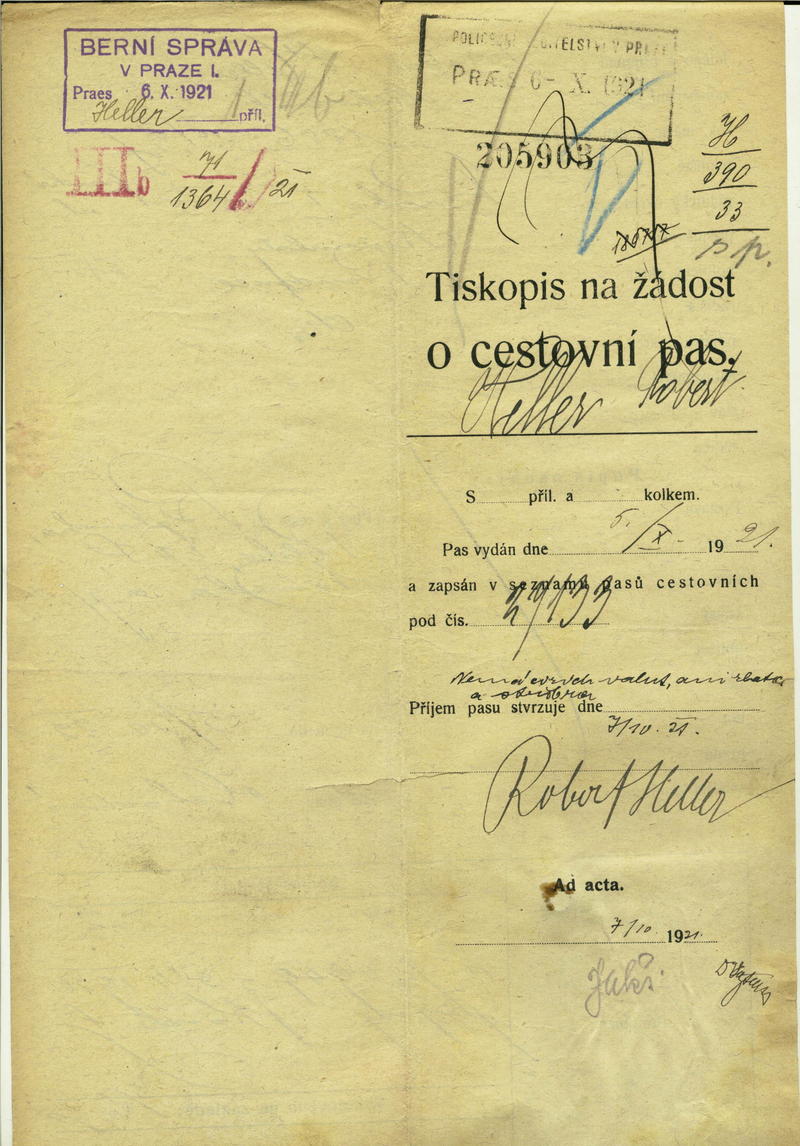 BERNÍ SPRÁVA
V PRAZE I.
Praes 6. X. 1921
Heller příl.
IIIb 71
1364 / 21
POLICEJNÍ ŘEDITELSTVÍ V PRAZE
PRÆS 6- X. 1921
205903
H
390
33
Tiskopis na žádost
o cestovní pas.
Heller Robert
S příl. a kolkem.
Pas vydán dne 5./X. 1921.
a zapsán v seznamu pasů cestovních
pod čís. 27133
Nemá cizích valut, ani zlata
a stříbra
Příjem pasu stvrzuje dne
7/10. 21.
Robert Heller
Ad acta.
7/10 1921.